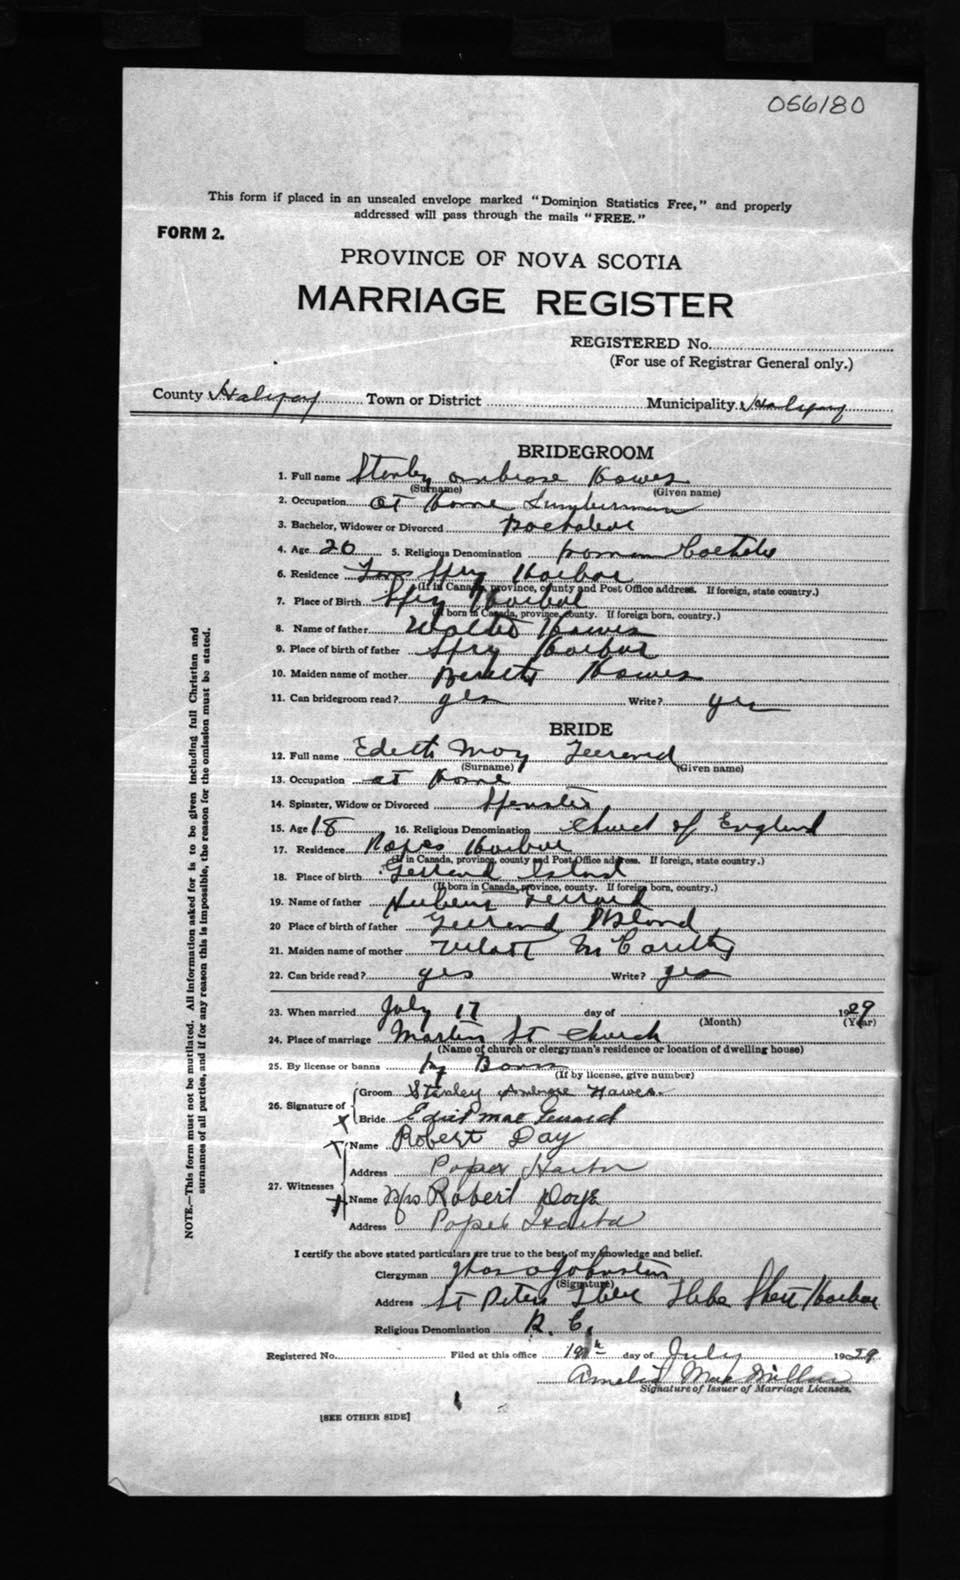 056180
This form if placed in an unsealed envelope marked "Dominion Statistics Free," and properly
addressed will pass through the mails "FREE."
FORM 2.
PROVINCE OF NOVA SCOTIA
MARRIAGE REGISTER
REGISTERED No.
(For use of Registrar General only.)
County Halifax Town or District Municipality Halifax
BRIDEGROOM
1. Full name Stanley Ambrose Hawes
(Surname) (Given name)
2. Occupation at Home Lumberman
3. Bachelor, Widower or Divorced Bachelor
4. Age 20 5. Religious Denomination Roman
6. Residence Spry Harbor
(If in Canada, province, county and Post Office address. If foreign, state country.)
7. Place of Birth Spry Harbor
(If born in Canada, province, county. If foreign born, country.)
8. Name of father Walter Hawes
9. Place of birth of father Spry Harbor
10. Maiden name of mother Hawes
11. Can bridegroom read? yes Write? yes
BRIDE
12. Full name Edith May Gerrard
(Surname) (Given name)
13. Occupation at Home
14. Spinster, Widow or Divorced Spinster
15. Age 18 16. Religious Denomination Church of England
17. Residence Popes Harbor
(If in Canada, province, county and Post Office address. If foreign, state country.)
18. Place of birth Gerrard Island
(If born in Canada, province, county. If foreign born, country.)
19. Name of father Gerrard
20 Place of birth of father Gerrard Island
21. Maiden name of mother McCarthy
22. Can bride read? yes Write? yes
23. When married July 17 day of 1929
(Month) (Year)
24. Place of marriage Martin St Church
(Name of church or clergyman's residence or location of dwelling house)
25. By license or banns by Banns
(If by license, give number)
26. Signature of Groom Stanley Ambrose Hawes.
Bride Edith Mae Gerrard
Name Robert Day
Address Popes Harbor
27. Witnesses
Name Mrs Robert Daye
Address Popes Harbor
I certify the above stated particulars are true to the best of my knowledge and belief.
Clergyman
(Signature)
Address St Peters Sheet Harbor
Religious Denomination R. C.
Registered No. Filed at this office 19th day of July 1929
Amelia MacMillan
Signature of Issuer of Marriage Licenses.
[SEE OTHER SIDE]
NOTE.—This form must not be mutilated. All information asked for is to be given including full Christian and
surnames of all parties, and if for any reason this is impossible, the reason for the omission must be stated.